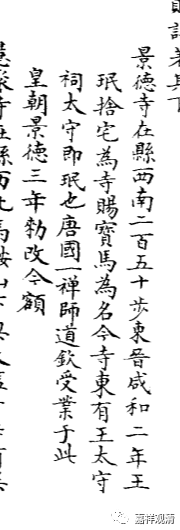 景德寺在縣西南二百五十步東晉咸和二年王
珉捨宅為寺賜寶馬為名今寺東有王太守
祠太守即珉也唐國一禪師道欽受業于此
皇朝景德三年勑改今額
嘉祥观清